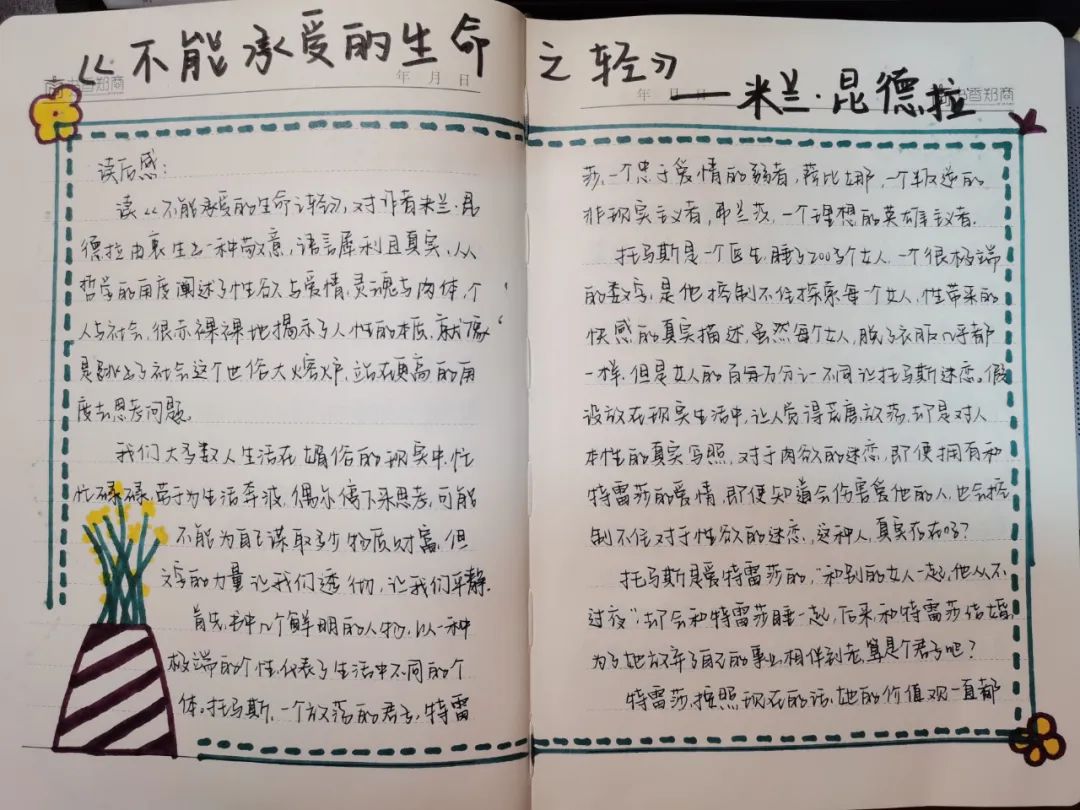 《不能承受的生命之轻》
——米兰·昆德拉
年 月 日
书香郑商
年 月 日
书香郑商
读后感:
读《不能承受的生命之轻》,对作者米兰·昆
德拉由衷生出一种敬意,语言犀利且真实,从
哲学的角度阐述了性欲与爱情,灵魂与肉体,个
人与社会,很赤裸裸地揭示了人性的本质,就像
是跳出了社会这个世俗大熔炉,站在更高的角
度去思考问题。
我们大多数人生活在媚俗的现实中,忙
忙碌碌,苦于为生活奔波,偶尔停下来思考,可能
不能为自己谋取多少物质财富,但
文字的力量让我们透彻,让我们平静.
首先,书中几个鲜明的人物,以一种
极端的个性,代表了生活中不同的个
体。托马斯,一个放荡的君子,特雷
莎,一个忠于爱情的弱者,萨比娜,一个叛逆的
非现实主义者,弗兰茨,一个理想的英雄主义者.
托马斯是一个医生,睡了200多个女人,一个很极端
的数字,是他控制不住探索每个女人,性带来的
快感的真实描述,虽然每个女人,脱了衣服几乎都
一样,但是女人的百万分之一不同让托马斯迷恋。假
设放在现实生活中,让人觉得荒唐,放荡,却是对人
本性的真实写照,对于肉欲的迷恋,即便拥有和
特雷莎的爱情,即便知道会伤害爱他的人,也会控
制不住对于性欲的迷恋,这种人,真实存在吗?
托马斯是爱特雷莎的,“和别的女人一起,他从不
过夜”却会和特雷莎睡一起,后来,和特雷莎结婚,
为了她放弃了自己的事业,相伴到老,算是个君子吧?
特雷莎,按照现在的话,她的价值观一直都